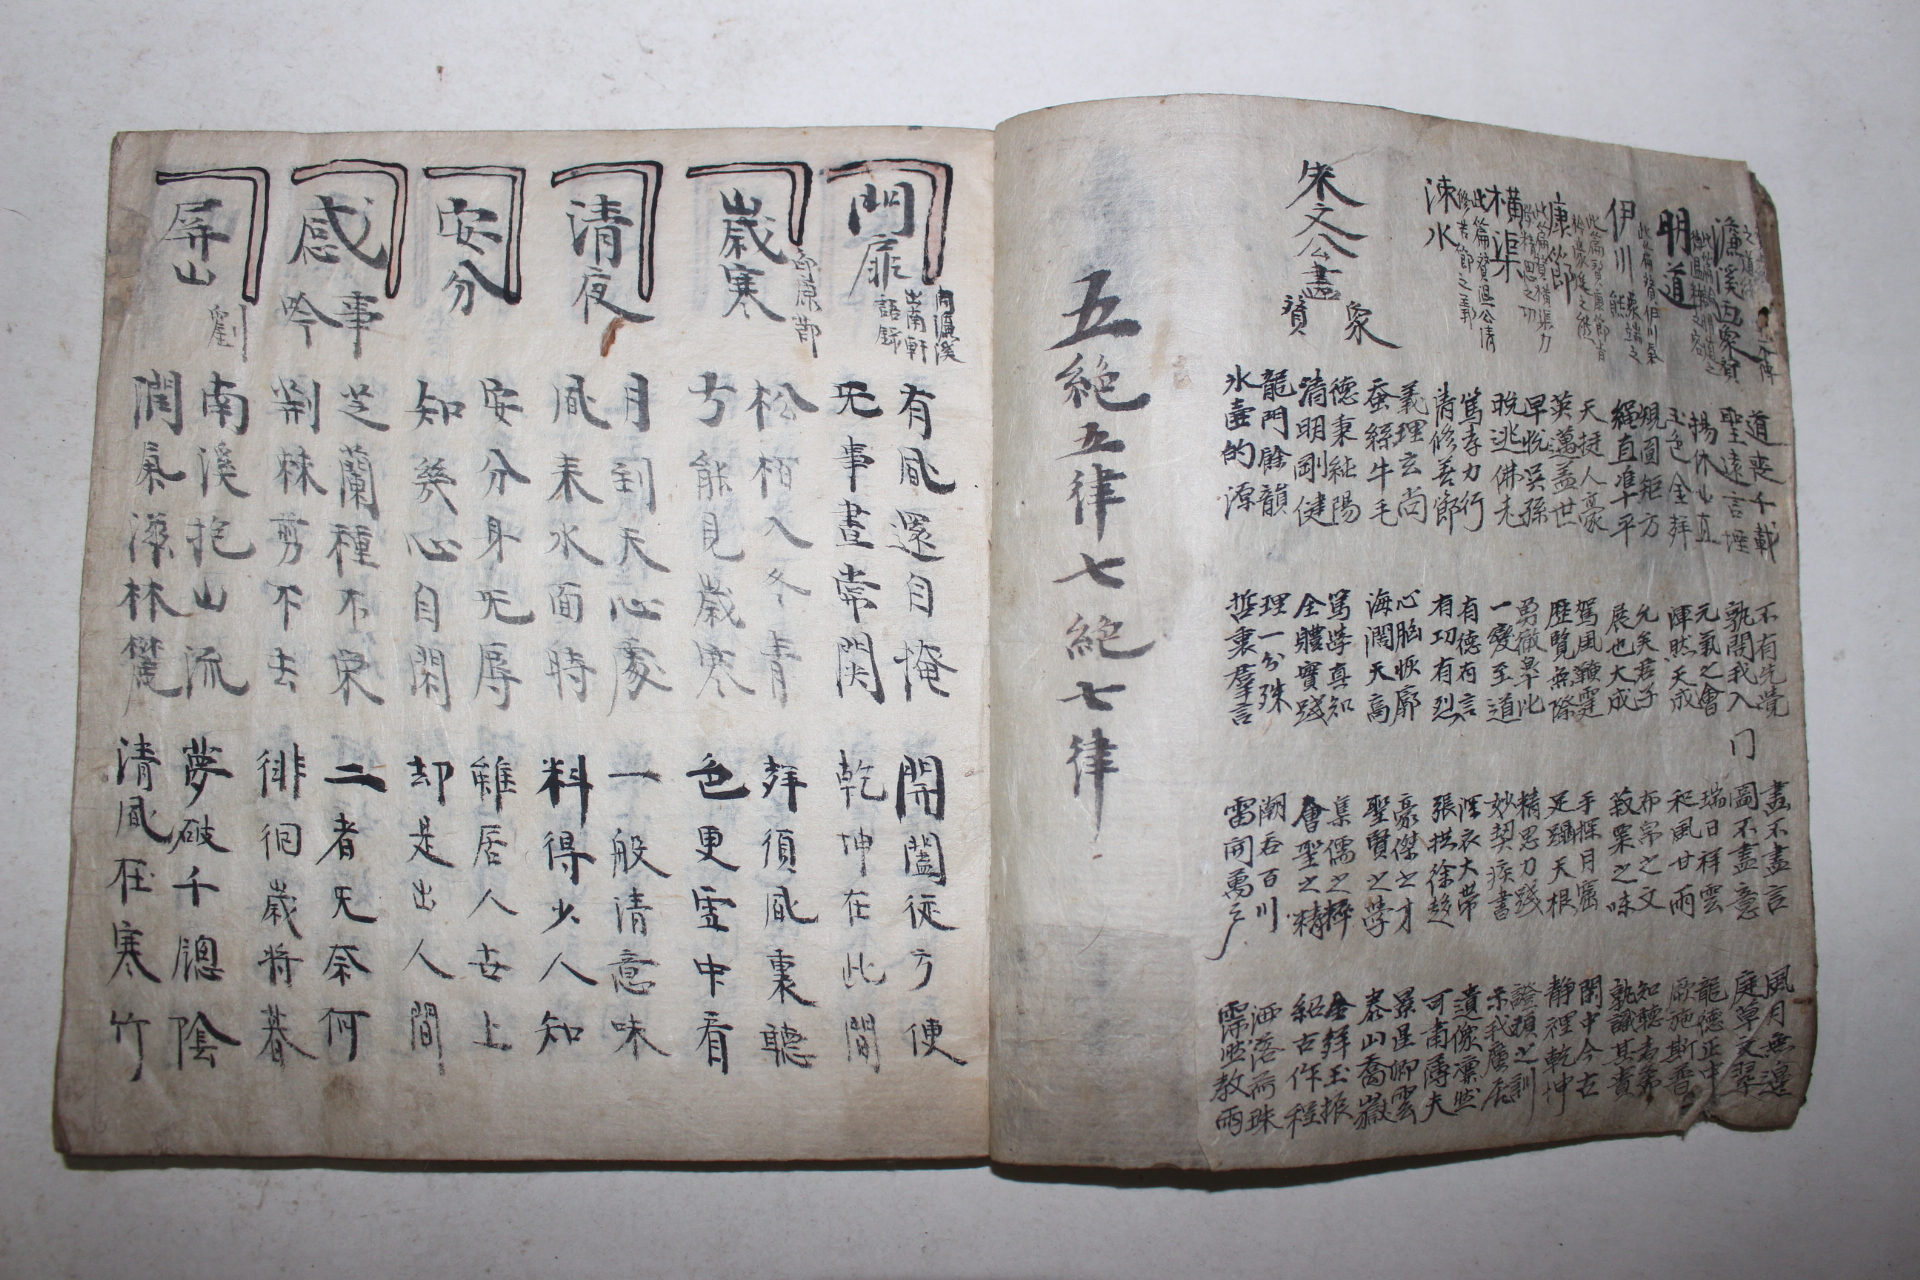 濂溪西象贊
道喪千載 不有先覺 書不盡言 風月無邊
聖遠言堙 孰開我入 門 圖不盡意 庭草交翠
明道
揚休山立 元氣之會 瑞日祥雲 龍德正中
玉色金聲 渾然天成 和風甘雨 厥施斯普
伊川
規圓矩方 允矣君子 布帛之文 知德者希
繩直準平 展也大成 菽粟之味 孰識其貴
康節
天挺人豪 駕風鞭霆 手探月窟 閑中今古
英邁蓋世 歷覽無際 足躡天根 靜裡乾坤
橫渠
早悅吳孫 勇撤皐比 精思力踐 證頑之訓
晚逃佛老 一變至道 妙契疾書 示我廣居
涑水
篤孝力行 有德有言 深衣大帶 遺像凛然
清修苦節 有功有烈 張拱徐趍 可肅薄夫
朱文公畫象贊
義理玄尚 心胸恢廓 豪傑之才 景星卿雲
蚕絲牛毛 海濶天高 聖賢之學 泰山喬嶽
德秉純陽 篤學真知 集儒之粹 金聲玉振
清明剛健 全體實踐 會聖之精 紹古作程
龍門餘韻 理一分殊 潮呑百川 洒落而珠
氷壺的源 哲秉羣言 雷開萬戶 霈然教雨
五絶五律七絶七律
門扉 問濂溪 出南軒語錄
有風還自掩 開闔從方便
旡事晝常関 乾坤在此間
歲寒
松栢入冬青 聲須風裏聽
方能見歲寒 色更雪中看
清夜
月到天心處 一般清意味
風來水面時 料得少人知
安分
安分身旡辱 雖居人世上
知幾心自閑 却是出人間
感事吟
芝蘭種不榮 二者旡奈何
荆棘剪不去 徘徊歲將暮
屏山 劉
南溪抱山流 夢破千鐘陰
潤氣滋林麓 清風在寒竹